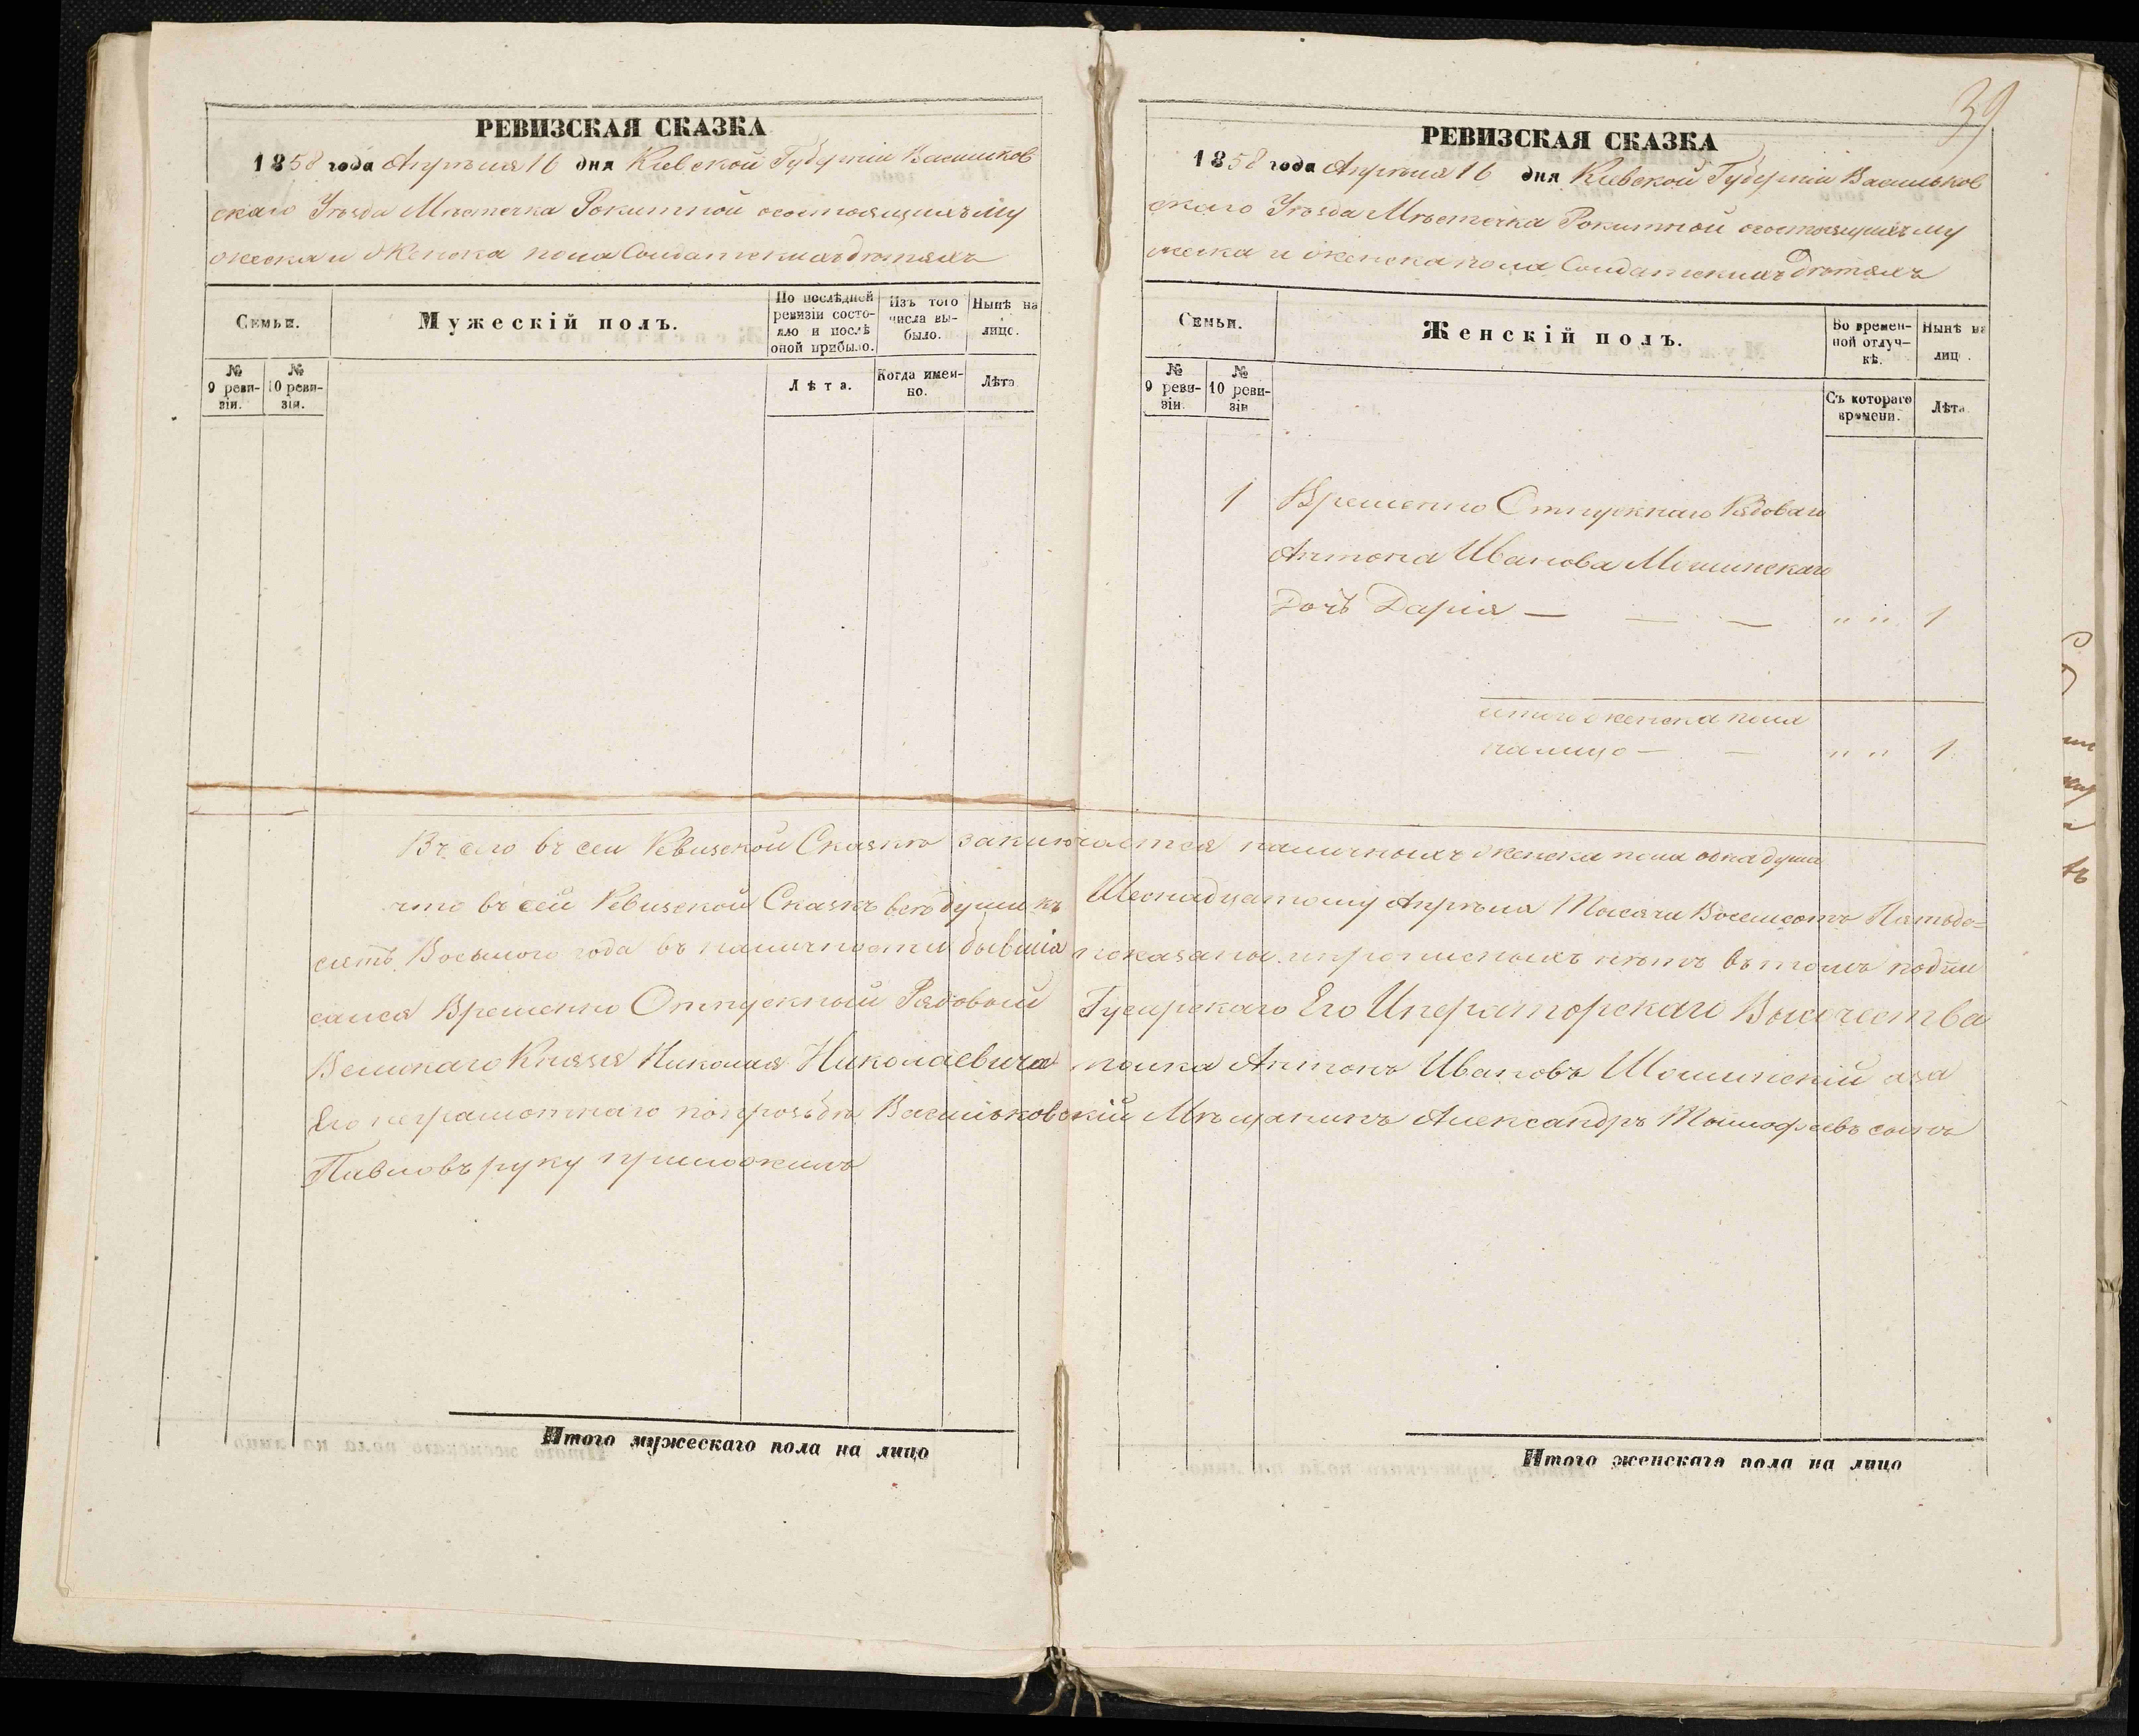 РЕВИЗСКАЯ СКАЗКА
1858 года Апрѣля 16 дня Кіевской Губерніи Васильков
скаго Уѣзда Мѣстечка Рокитной осостоящихъ му
жеска и женска пола Солдатскихъ дѣтяхъ
Семьи.
Мужескій полъ.
По послѣдней ревизіи состояло и послѣ оной прибыло.
Изъ того числа выбыло.
Нынѣ на лицо.
№ 9 ревизіи.
№ 10 ревизіи.
Лѣта.
Когда именно.
Лѣта
Итого мужескаго пола на лицо
39
РЕВИЗСКАЯ СКАЗКА
1858 года Апрѣля 16 дня Кіевской Губерніи Васильков
скаго Уѣзда Мѣстечка Рокитной осостоящихъ му
жеска и женска пола Солдатскихъ дѣтяхъ
Семьи.
Женскій полъ.
Во временной отлучкѣ.
Нынѣ на лиц.
№ 9 ревизіи.
№ 10 ревизіи
Съ котораго времени.
Лѣта
1 Временно Отпускнаго Рядоваго
Антона Иванова
Дочь Дарія — — — " " 1
итого женска пола
налицо — — " " 1
Въсего въ сей Ревизской Сказкѣ заключается наличныхъ женска пола одна душа
что въ сей Ревизской Сказкѣ всѣ души къ Шеснадцатому Апрѣля Тысяча Восемсотъ Пятьде=
сятъ Восьмого года въ наличности бывшія показаны и прописныхъ нѣтъ въ томъ подпи
сался Временно Отпускный Рядовый Гусарскаго Его Императорскаго Высочества
Великаго Князя Николая Николаевича полка Антонъ Ивановъ аза
Его неграмотнаго попрозьбѣ Васильковскій Мѣщанинъ Александръ сынъ
Павловъ руку приложилъ
Итого женскаго пола на лицо